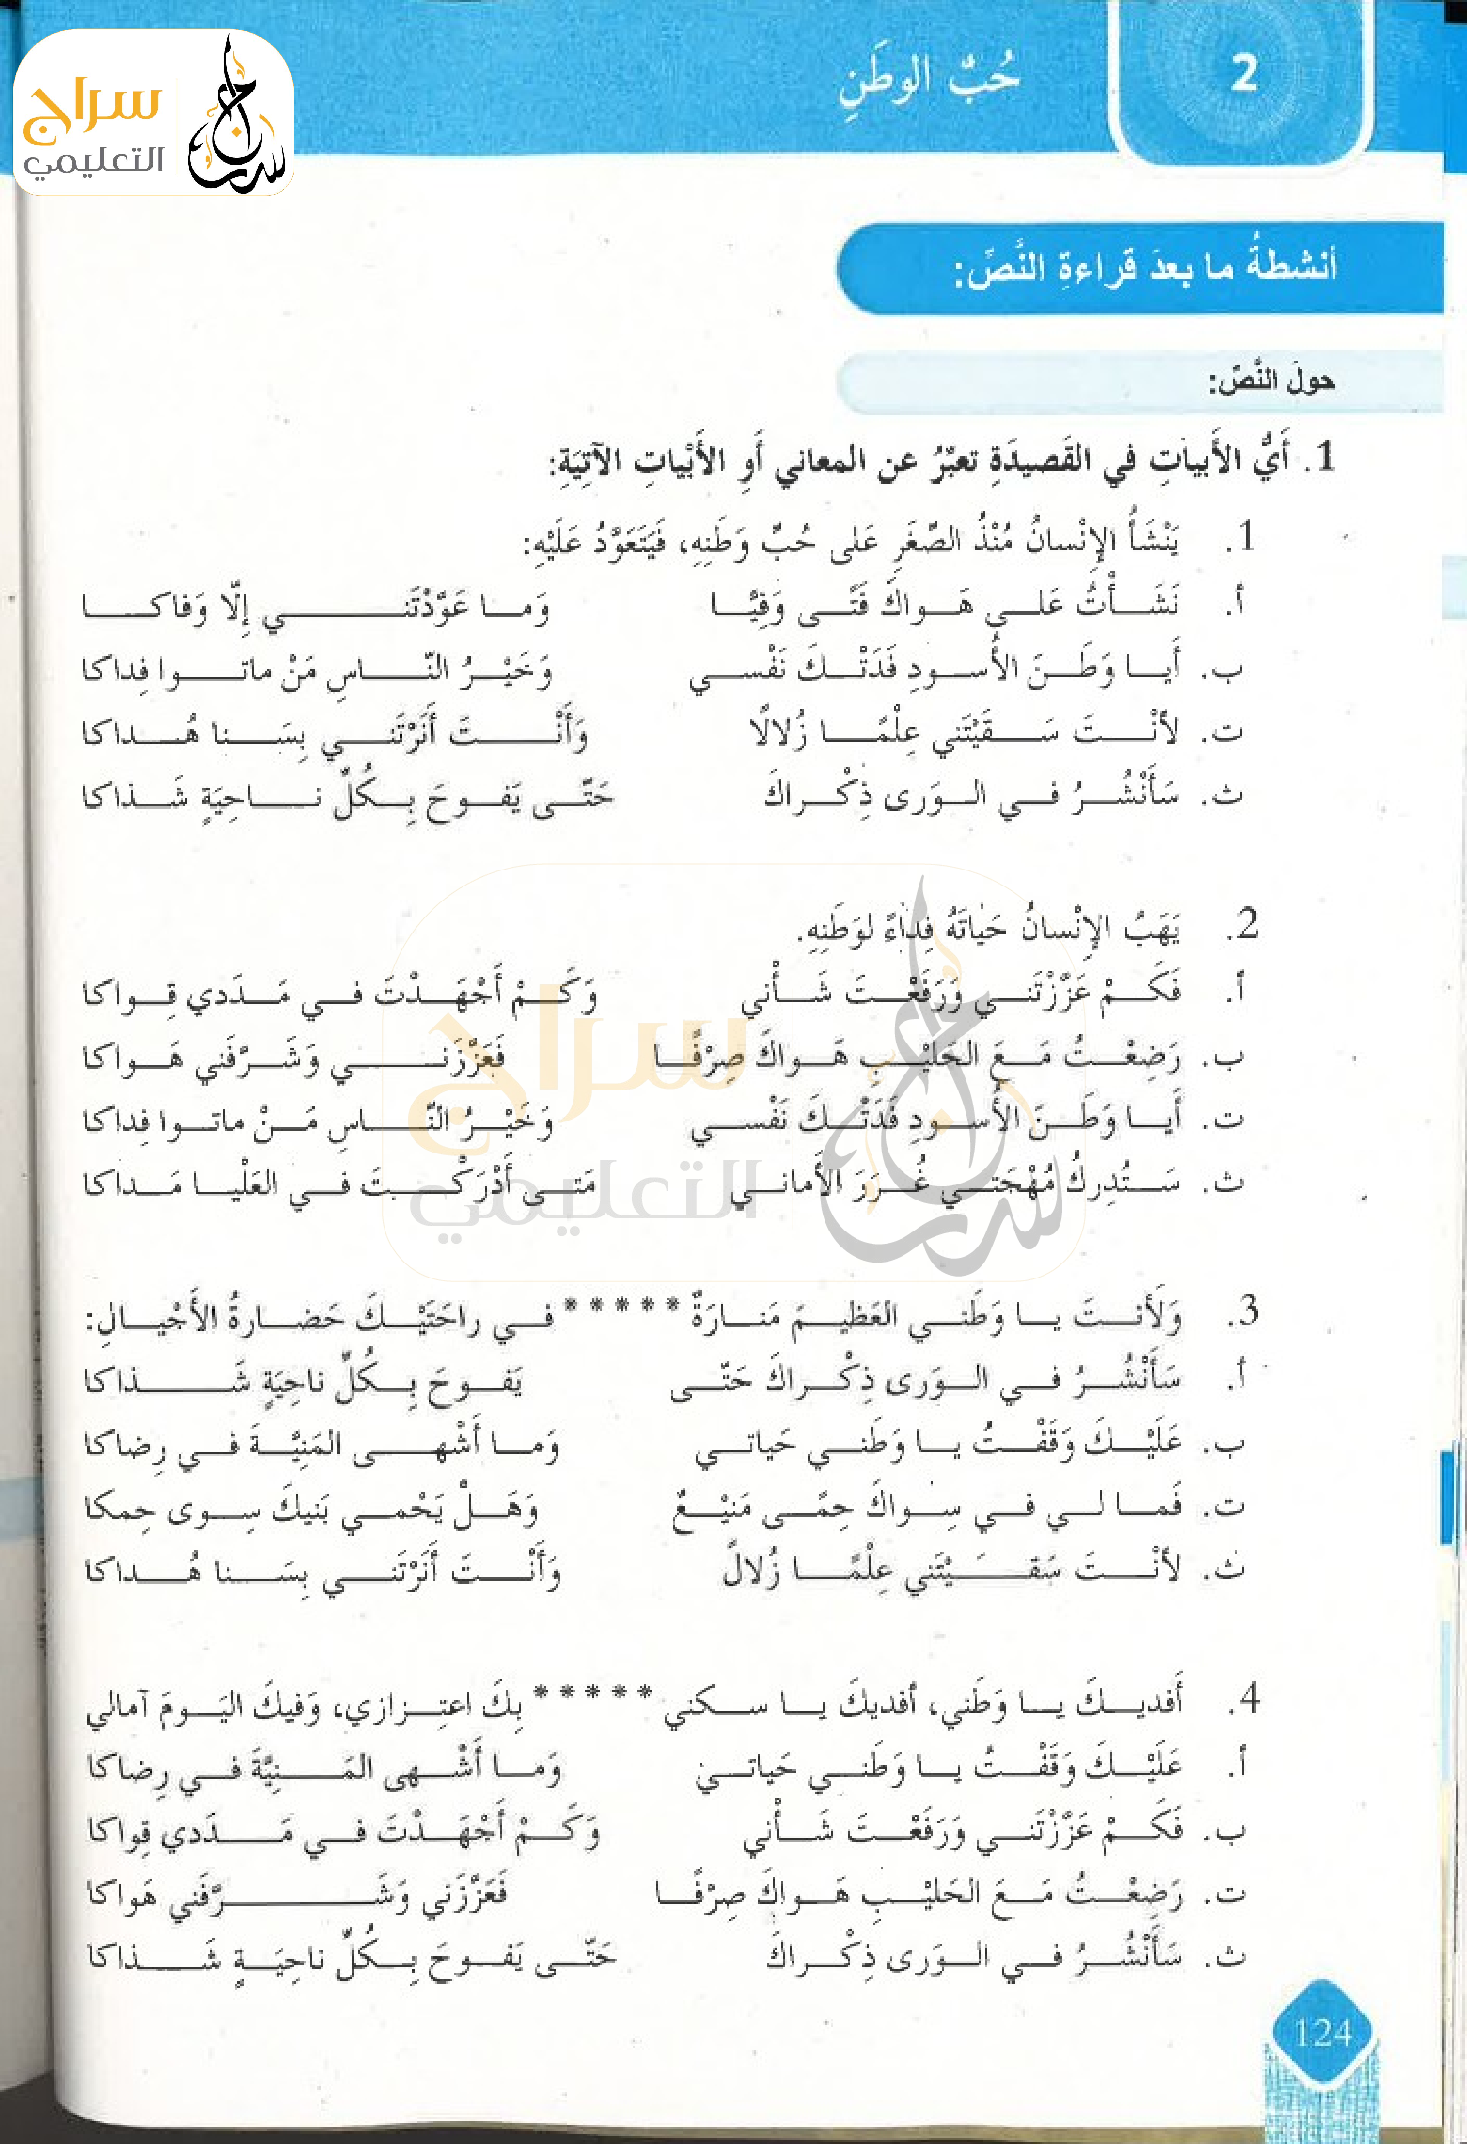 سراج
التعليمي
حُبُّ الوطَنِ
2
أنشطةُ ما بعدَ قراءةِ النَّصِّ:
حولَ النَّصِّ:
1. أَيُّ الأَبياتِ في القَصيدَةِ تعبّرُ عن المعاني أَوِ الأَبْياتِ الآتِيَةِ:
1. يَنْشَأُ الإِنْسانُ مُنْذُ الصِّغَرِ عَلى حُبِّ وَطَنِهِ، فَيَتَعَوَّدُ عَلَيْهِ:
أ. نَشَأْتُ عَلى هَواكَ فَتًى وَفِيًّا وَما عَوَّدْتَني إِلّا وَفاكا
ب. أَيا وَطَنَ الأُسودِ فَدَتْكَ نَفْسي وَخَيْرُ النّاسِ مَنْ ماتوا فِداكا
ت. لأنْتَ سَقَيْتَني عِلْمًا زُلالًا وَأَنْتَ أَنَرْتَني بِسَنا هُداكا
ث. سَأَنْشُرُ في الوَرى ذِكْراكَ حَتّى يَفوحَ بِكُلِّ ناحِيَةٍ شَذاكا
2. يَهَبُ الإِنْسانُ حَياتَهُ فِداءً لوَطَنِهِ.
أ. فَكَمْ عَزَّزْتَني وَرَفَعْتَ شَأْني وَكَمْ أَجْهَدْتَ في مَدَدي قِواكا
ب. رَضِعْتُ مَعَ الحَليْبِ هَواكَ صِرْفًا فَعَزَّزَني وَشَرَّفَني هَواكا
ت. أَيا وَطَنَ الأُسودِ فَدَتْكَ نَفْسي وَخَيْرُ النّاسِ مَنْ ماتوا فِداكا
ث. سَتُدِركُ مُهْجَتي غُرَرَ الأَماني مَتى أَدْرَكْتَ في العَلْيا مَداكا
3. وَلَأنتَ يا وَطَني العَظيمَ مَنارَةٌ ***** في راحَتَيْكَ حَضارةُ الأَجْيالِ:
أ. سَأَنْشُرُ في الوَرى ذِكْراكَ حَتّى يَفوحَ بِكُلِّ ناحِيَةٍ شَذاكا
ب. عَلَيْكَ وَقَفْتُ يا وَطَني حَياتي وَما أَشْهى المَنِيَّةَ في رِضاكا
ت. فَما لي في سِواكَ حِمًى مَنيْعٌ وَهَلْ يَحْمي بَنيكَ سِوى حِمكا
ث. لأنْتَ سَقَيْتَني عِلْمًا زُلالً وَأَنْتَ أَنَرْتَني بِسَنا هُداكا
4. أَفديكَ يا وَطَني، أفديكَ يا سكني ***** بِكَ اعتِزازي، وَفيكَ اليَومَ آمالي
أ. عَلَيْكَ وَقَفْتُ يا وَطَني حَياتي وَما أَشْهى المَنِيَّةَ في رِضاكا
ب. فَكَمْ عَزَّزْتَني وَرَفَعْتَ شَأْني وَكَمْ أَجْهَدْتَ في مَدَدي قِواكا
ت. رَضِعْتُ مَعَ الحَليْبِ هَواكَ صِرْفًا فَعَزَّزَني وَشَرَّفَني هَواكا
ث. سَأَنْشُرُ في الوَرى ذِكْراكَ حَتّى يَفوحَ بِكُلِّ ناحِيَةٍ شَذاكا
سراج
التعليمي
124